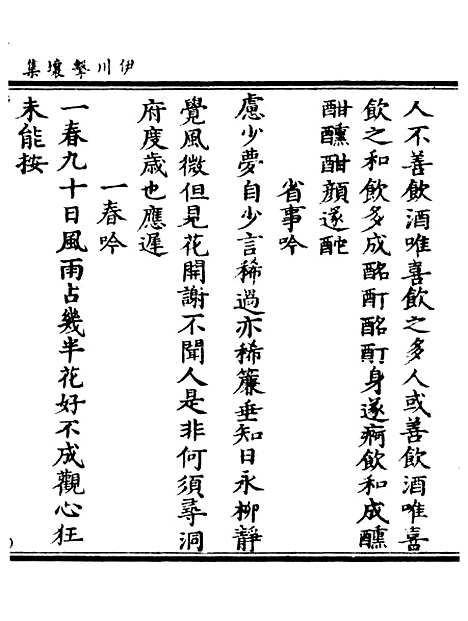 伊川擊壤集
人不善飲酒唯喜飲之多人或善飲酒唯喜
飲之和飲多成酩酊酩酊身遂痾飲和成醺
酣醺酣顔遂酡
省事吟
慮少夢自少言稀過亦稀簾垂知日永柳靜
覺風微但見花開謝不聞人是非何須尋洞
府度歲也應遲
一春吟
一春九十日風雨占幾半花好不成觀心狂
未能按